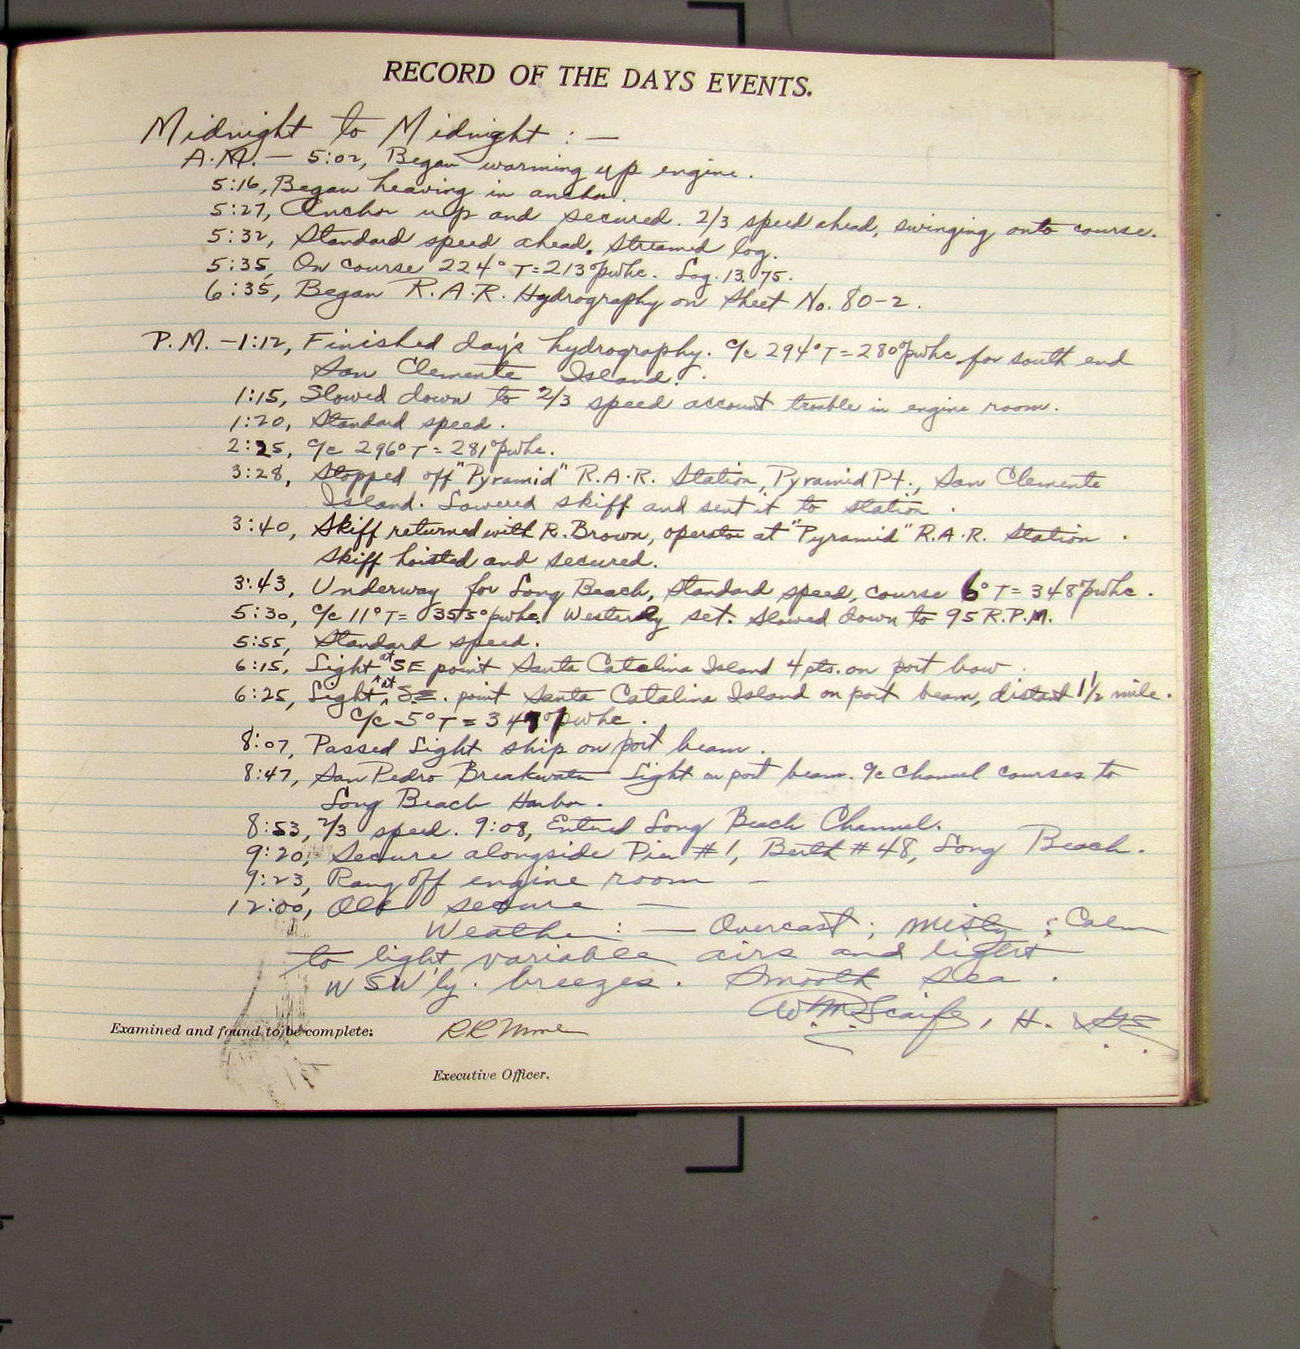 RECORD OF THE DAYS EVENTS.
Midnight to Midnight : —
A.M. — 5:02, Began warming up engine.
5:16, Began heaving in anchor.
5:27, Anchor up and secured. 2/3 speed ahead, swinging onto course.
5:32, Standard speed ahead. Streamed log.
5:35, On course 224° T = 213° pwhc. Log. 13.75.
6:35, Began R.A.R. Hydrography on Sheet No. 80-2.
P.M. — 1:12, Finished day's hydrography. c/c 294° T = 280° pwhc for south end
San Clemente Island.
1:15, Slowed down to 2/3 speed account trouble in engine room.
1:20, Standard speed.
2:25, c/c 296° T = 281° pwhc.
3:28, Stopped off "Pyramid" R.A.R. Station, Pyramid Pt., San Clemente
Island. Lowered skiff and sent it to station.
3:40, Skiff returned with R. Brown, operator at "Pyramid" R.A.R. Station.
Skiff hoisted and secured.
3:43, Underway for Long Beach, Standard speed, course 6° T = 348° pwhc.
5:30, c/c 11° T = 355° pwhc. Westerly set. Slowed down to 95 R.P.M.
5:55, Standard speed.
6:15, Light at SE point Santa Catalina Island 4 pts. on port bow.
6:25, Light at S.E. point Santa Catalina Island on port beam, distant 1 1/2 mile.
c/c 5° T = 347° pwhc.
8:07, Passed Light ship on port beam.
8:47, San Pedro Breakwater Light on port beam. c/c Channel courses to
Long Beach Harbor.
8:53, 2/3 speed. 9:08, Entered Long Beach Channel.
9:20, Secure alongside Pier #1, Berth #48, Long Beach.
9:23, Rang off engine room —
12:00, All secure —
Weather : — Overcast ; misty ; Calm
to light variable airs and light
WSW'ly. breezes. Smooth sea.
Wm. Scaife, H. &GE
Examined and found to be complete:
Executive Officer.